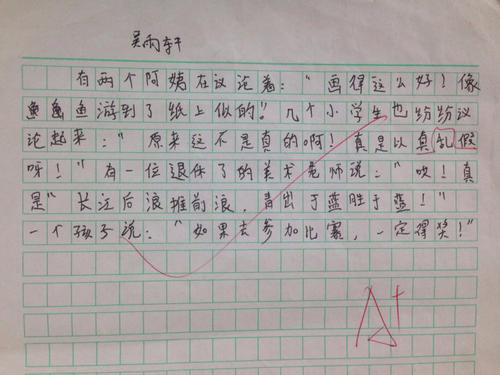 吴雨轩
有两个阿姨在议论着：“画得这么好！像
鱼鱼鱼游到了纸上似的！”几个小学生也纷纷议
论起来：“原来这不是真的啊！真是以真乱假
呀！”有一位退休了的美术老师说：“吹！真
是“长江后浪推前浪，青出于蓝胜于蓝！”
一个孩子说：“如果去参加比赛，一定得奖！”
A+